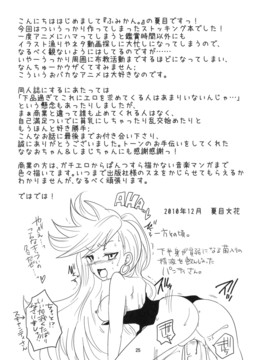 こんにちははじめまして『ふみかん。』の夏目ですっ!
今回はついうっかり作ってしまったストッキング本でした!
一度アニメにハマってしまうと鑑賞時間以外にも
イラスト漁りやヌタ動画探しに大忙しになってしまうので、
なるべく観ないようにしてるんですが、
いやーうっかり周囲に布教活動までするほどになってしまい、
なんちゅーかウザくてすみません;
こういうおバカなアニメは大好きなのです。
同人誌にするにあたっては
「下品過ぎてこれにエロを求めてくる人はあまりいないんじゃ…」
という懸念もあったりしましたが、
まぁ商業と違って誰も止めてくれる人はなく、
自己満足ついでに貧乳にしちゃったり乱交始めたりと
もうほんと好き勝手;
こんなお話に最後までお付き合い下さり、
誠にありがとうございました。トーンのお手伝いをしてくれた
ななおちゃん&しまじちゃんにも感謝感謝っ!
商業の方は、ガチエロからぱんつすら描かない音楽マンガまで
色々描いてます。いつまで出版社様のスネをかじらせてもらえるか
わかりませんが、なるべく頑張ります。
ではでは!
2010年12月 夏目文花
AHA~
もう一方の嫁。
パンティさん
25